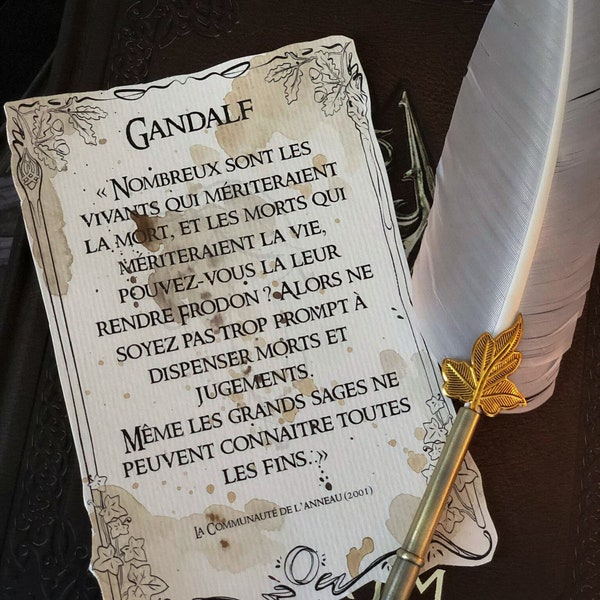 Gandalf
« Nombreux sont les
vivants qui mériteraient
la mort, et les morts qui
mériteraient la vie,
pouvez-vous la leur
rendre Frodon ? Alors ne
soyez pas trop prompt à
dispenser morts et
jugements.
Même les grands sages ne
peuvent connaitre toutes
les fins. »
La Communauté de l'anneau (2001)